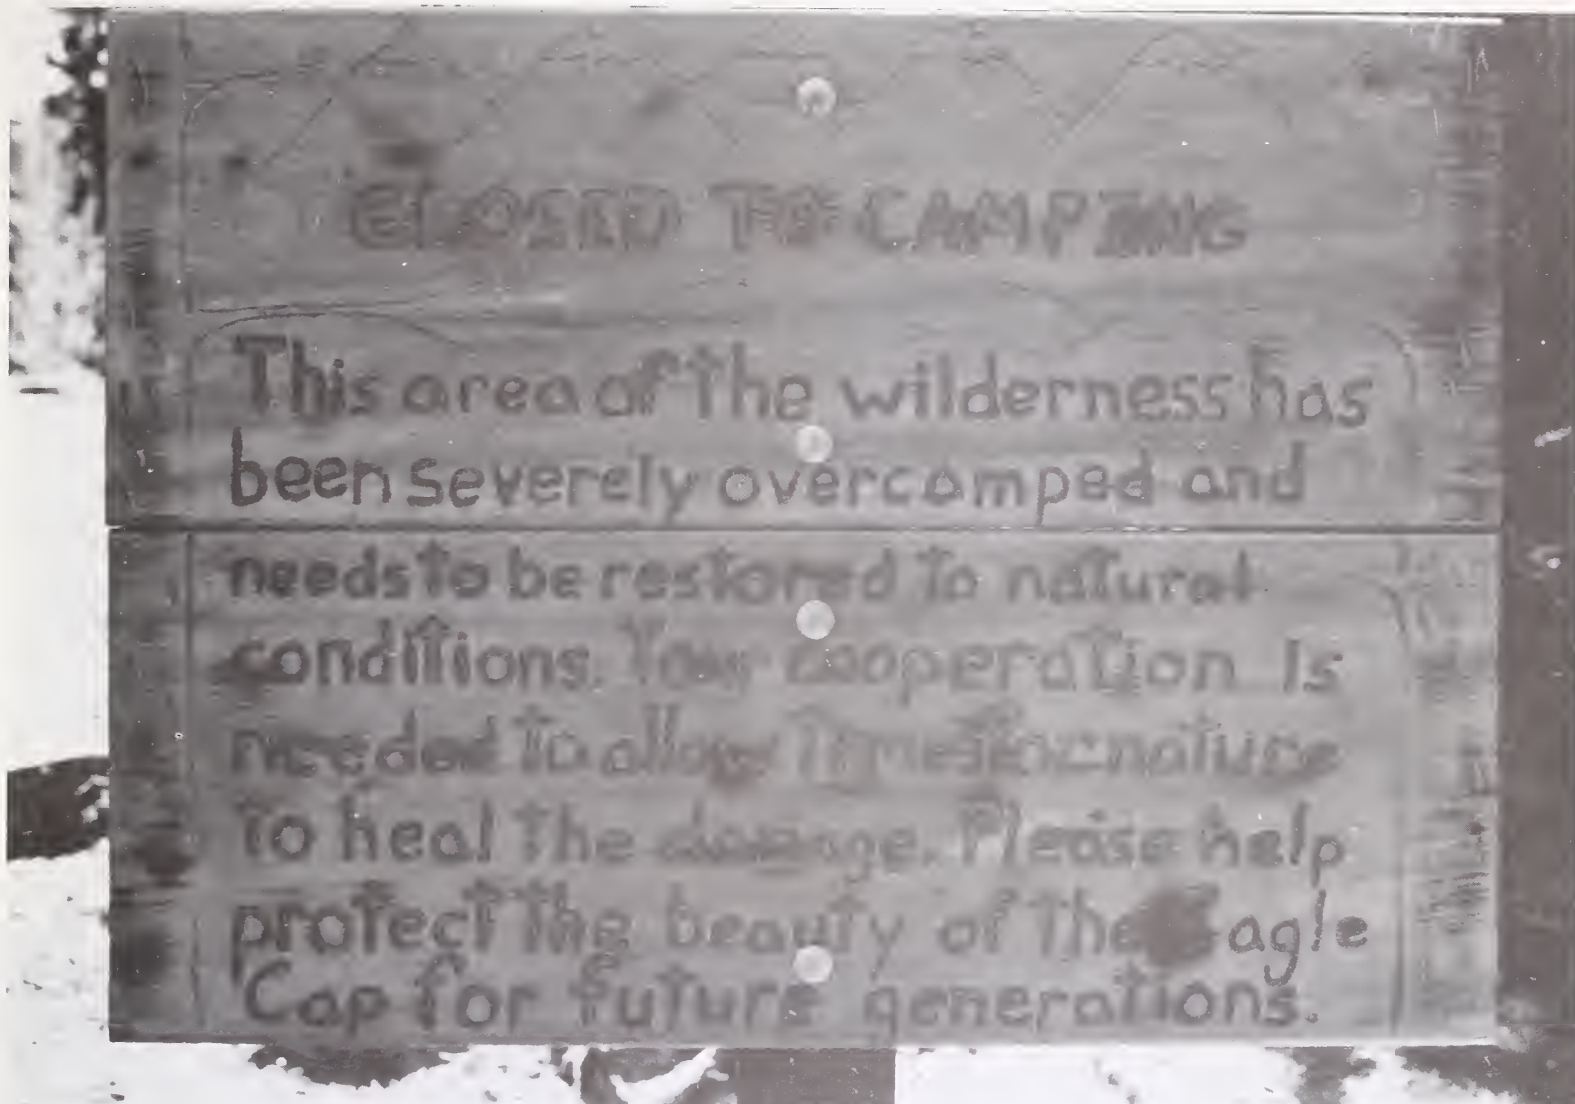 CLOSED TO CAMPING
This area of the wilderness has
been severely overcamped and
needs to be restored to natural
conditions. Your cooperation is
needed to allow time for nature
to heal the damage. Please help
protect the beauty of the Eagle
Cap for future generations.